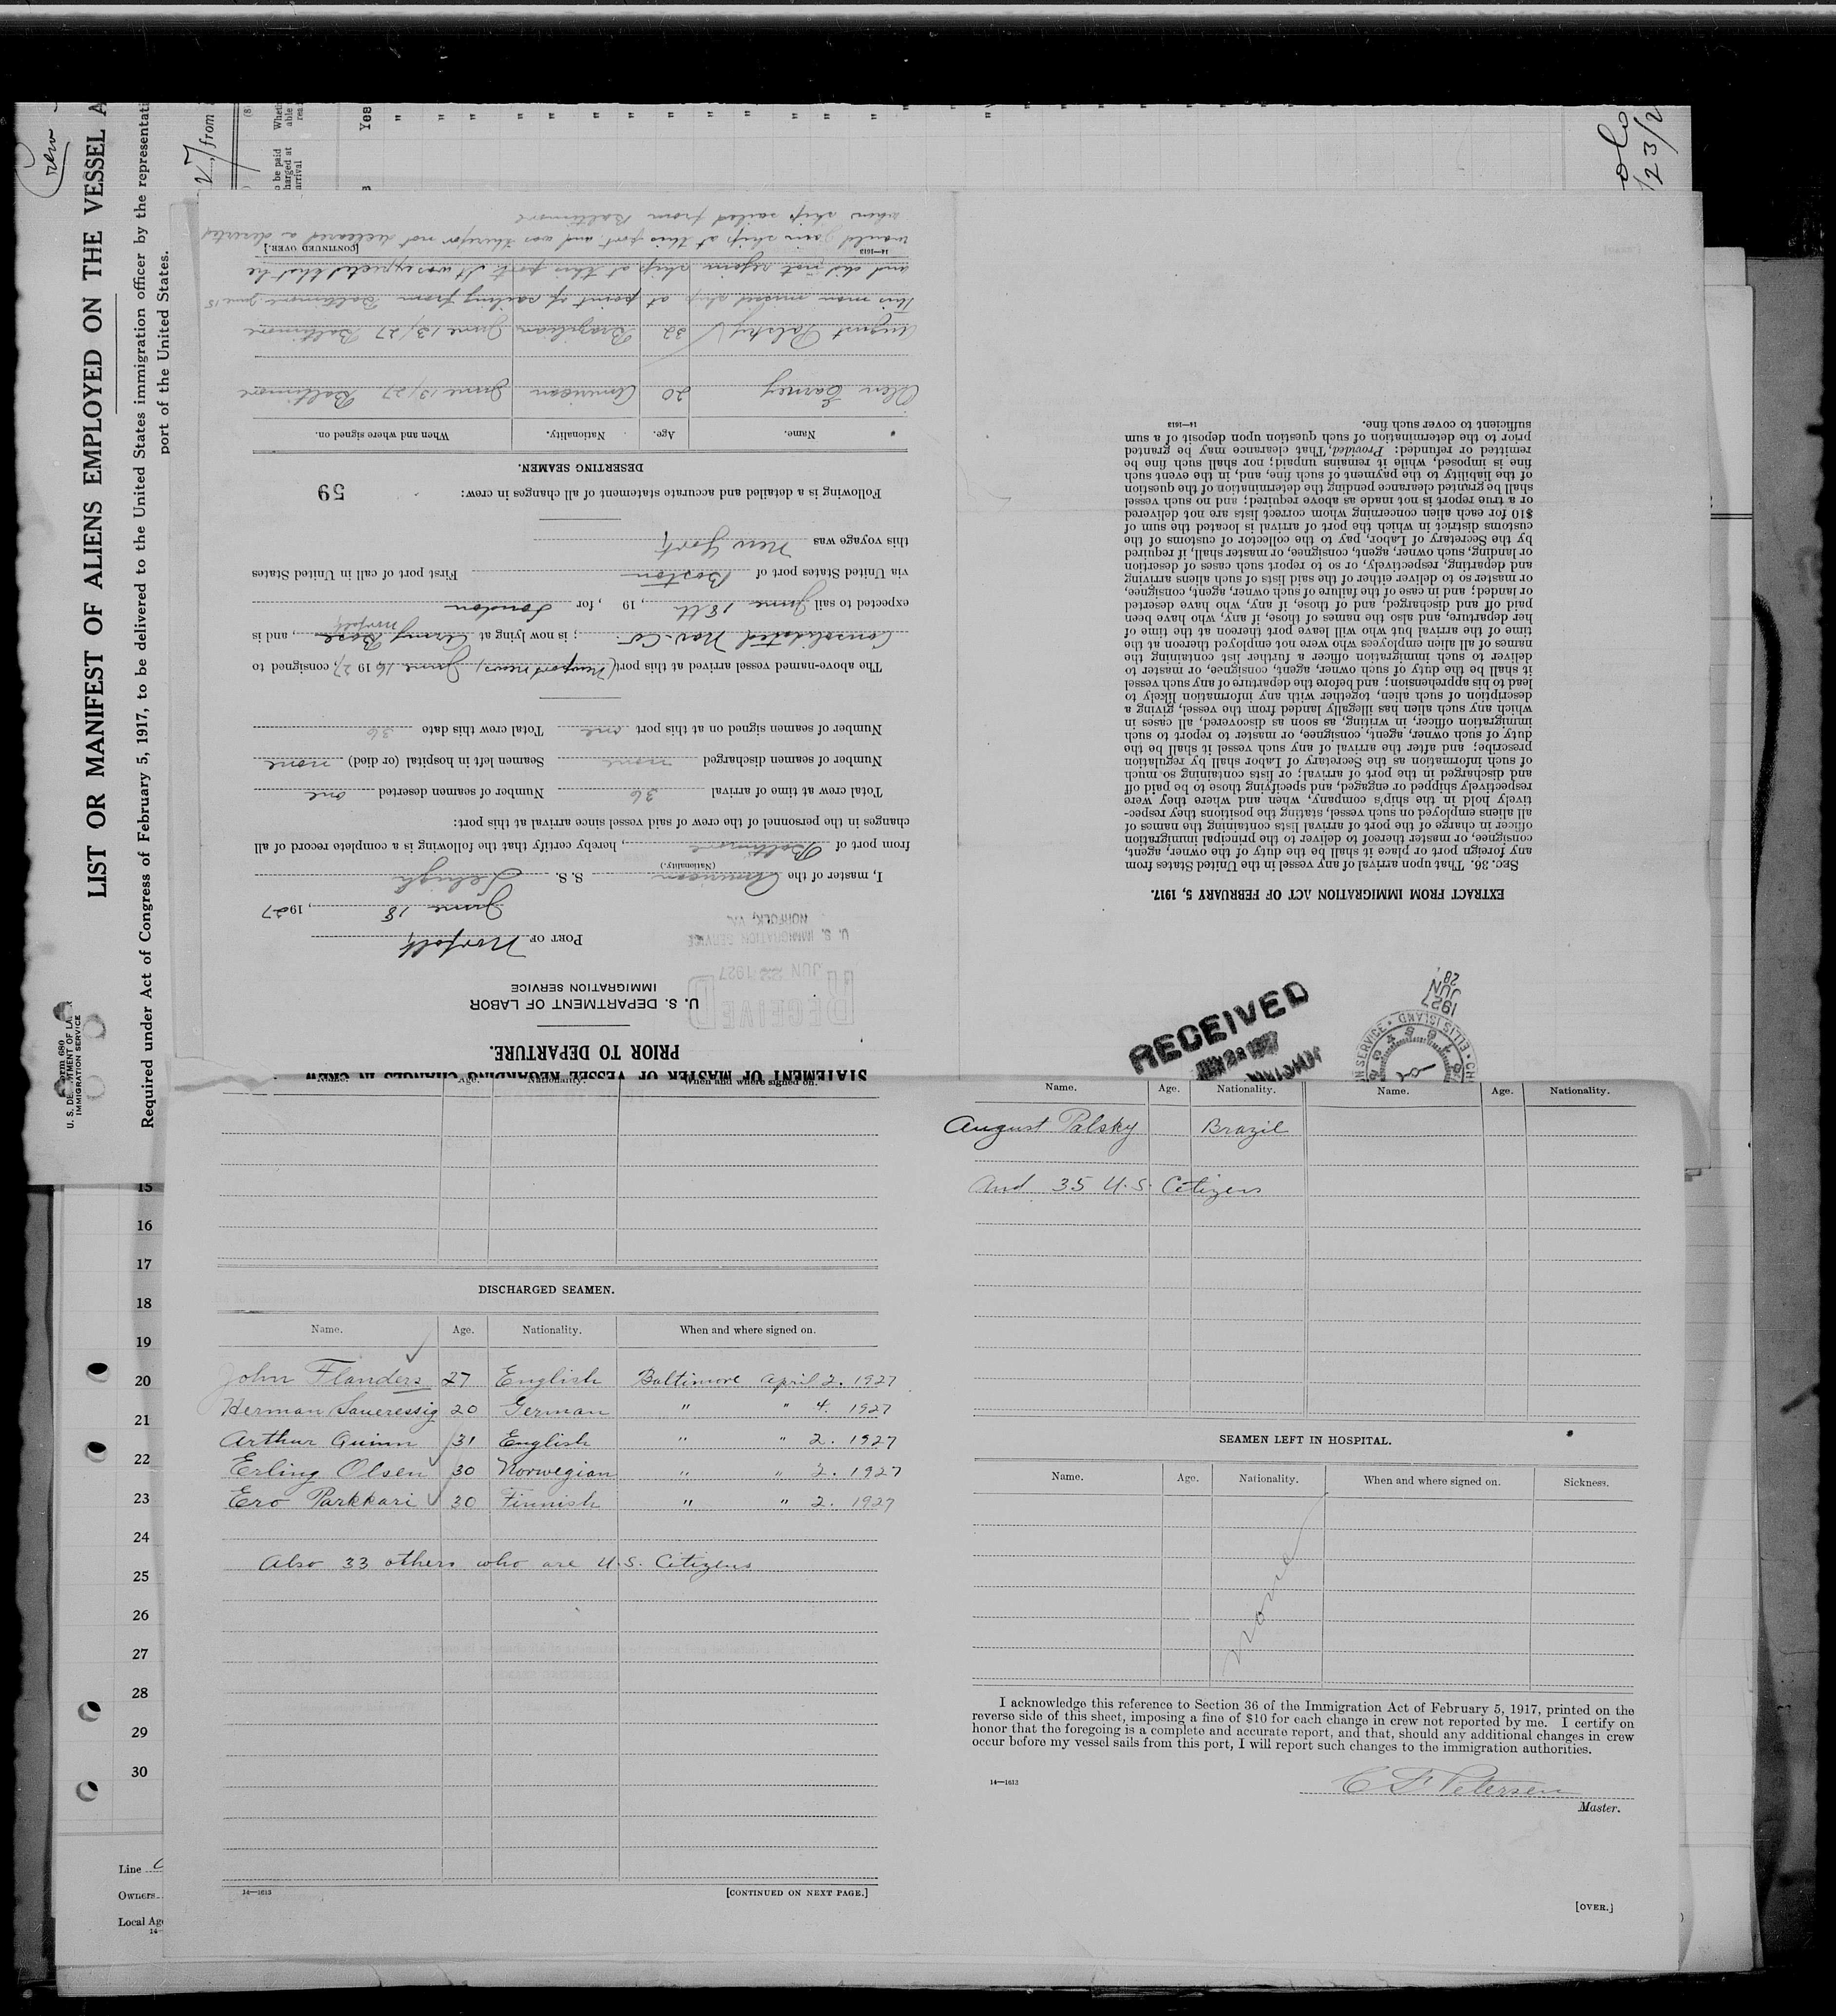 Crew
LIST OR MANIFEST OF ALIENS EMPLOYED ON THE VESSEL A
Required under Act of Congress of February 5, 1917, to be delivered to the United States immigration officer by the representati
port of the United States.
Form 680
IMMIGRATION SERVICE
27, from
Yes
STATEMENT OF MASTER OF VESSEL REGARDING CHANGES IN CREW
PRIOR TO DEPARTURE.
U. S. DEPARTMENT OF LABOR
IMMIGRATION SERVICE
RECEIVED
JUN 22 1927
U. S. IMMIGRATION SERVICE
NORFOLK, VA.
PORT OF Norfolk
June 18, 1927
I, master of the American S. S. Lehigh
(Nationality.)
from port of Baltimore, hereby certify that the following is a complete record of all
changes in the personnel of the crew of said vessel since arrival at this port:
Total crew at time of arrival 36 Number of seamen deserted one
Number of seamen discharged none Seamen left in hospital (or died) none
Number of seamen signed on at this port one Total crew this date 36
The above-named vessel arrived at this port (Newport News) June 16 1927, consigned to
Consolidated Nav. Co.; is now lying at Army Base Norfolk, and is
expected to sail June 18th, 19 , for London
via United States port of Boston First port of call in United States
this voyage was New York
Following is a detailed and accurate statement of all changes in crew:
59
DESERTING SEAMEN.
Name. Age. Nationality. When and where signed on.
Olen Earney 20 American June 13/27 Baltimore
August Palsky 32 Brazilian June 13/27 Baltimore
This man missed ship at point of sailing from Baltimore June 15
and did not rejoin ship at this port. It was expected that he
would join ship at this port, and was therefor not declared a deserter
when ship sailed from Baltimore
14—1613
[CONTINUED OVER.]
EXTRACT FROM IMMIGRATION ACT OF FEBRUARY 5, 1917.
SEC. 36. That upon arrival of any vessel in the United States from
any foreign port or place it shall be the duty of the owner, agent,
consignee, or master thereof to deliver to the principal immigration
officer in charge of the port of arrival lists containing the names of
all aliens employed on such vessel, stating the positions they respec-
tively hold in the ship's company, when and where they were
respectively shipped or engaged, and specifying those to be paid off
and discharged in the port of arrival; or lists containing so much
of such information as the Secretary of Labor shall by regulation
prescribe; and after the arrival of any such vessel it shall be the
duty of such owner, agent, consignee, or master to report to such
immigration officer, in writing, as soon as discovered, all cases in
which any such alien has illegally landed from the vessel, giving a
description of such alien, together with any information likely to
lead to his apprehension; and before the departure of any such vessel
it shall be the duty of such owner, agent, consignee, or master to
deliver to such immigration officer a further list containing the
names of all alien employees who were not employed thereon at the
time of the arrival but who will leave port thereon at the time of
her departure, and also the names of those, if any, who have been
paid off and discharged, and of those, if any, who have deserted
or landed; and in case of the failure of such owner, agent, consignee,
or master so to deliver either of the said lists of such aliens arriving
and departing, respectively, or so to report such cases of desertion
or landing, such owner, agent, consignee, or master shall, if required
by the Secretary of Labor, pay to the collector of customs of the
customs district in which the port of arrival is located the sum of
$10 for each alien concerning whom correct lists are not delivered
or a true report is not made as above required; and no such vessel
shall be granted clearance pending the determination of the question
of the liability to the payment of such fine, and, in the event such
fine is imposed, while it remains unpaid; nor shall such fine be
remitted or refunded: Provided, That clearance may be granted
prior to the determination of such question upon deposit of a sum
sufficient to cover such fine.
14—1613
RECEIVED
1927
JUN
28
Name. Age. Nationality. When and where signed on.
DISCHARGED SEAMEN.
Name. Age. Nationality. When and where signed on.
John Flanders 27 English Baltimore April 2. 1927
Herman Saueressig 20 German " " 4. 1927
Arthur Quinn 31 English " " 2. 1927
Erling Olsen 30 Norwegian " " 2. 1927
Ero Parkkari 30 Finnish " " 2. 1927
Also 33 others who are U.S. Citizens
14—1613
[CONTINUED ON NEXT PAGE.]
Name. Age. Nationality. Name. Age. Nationality.
August Palsky Brazil
and 35 U.S. Citizens
SEAMEN LEFT IN HOSPITAL.
Name. Age. Nationality. When and where signed on. Sickness.
None
I acknowledge this reference to Section 36 of the Immigration Act of February 5, 1917, printed on the
reverse side of this sheet, imposing a fine of $10 for each change in crew not reported by me. I certify on
honor that the foregoing is a complete and accurate report, and that, should any additional changes in crew
occur before my vessel sails from this port, I will report such changes to the immigration authorities.
14—1613
C F Petersen
Master.
[OVER.]
15
16
17
18
19
20
21
22
23
24
25
26
27
28
29
30
Line
Owners
Local Ag
14—